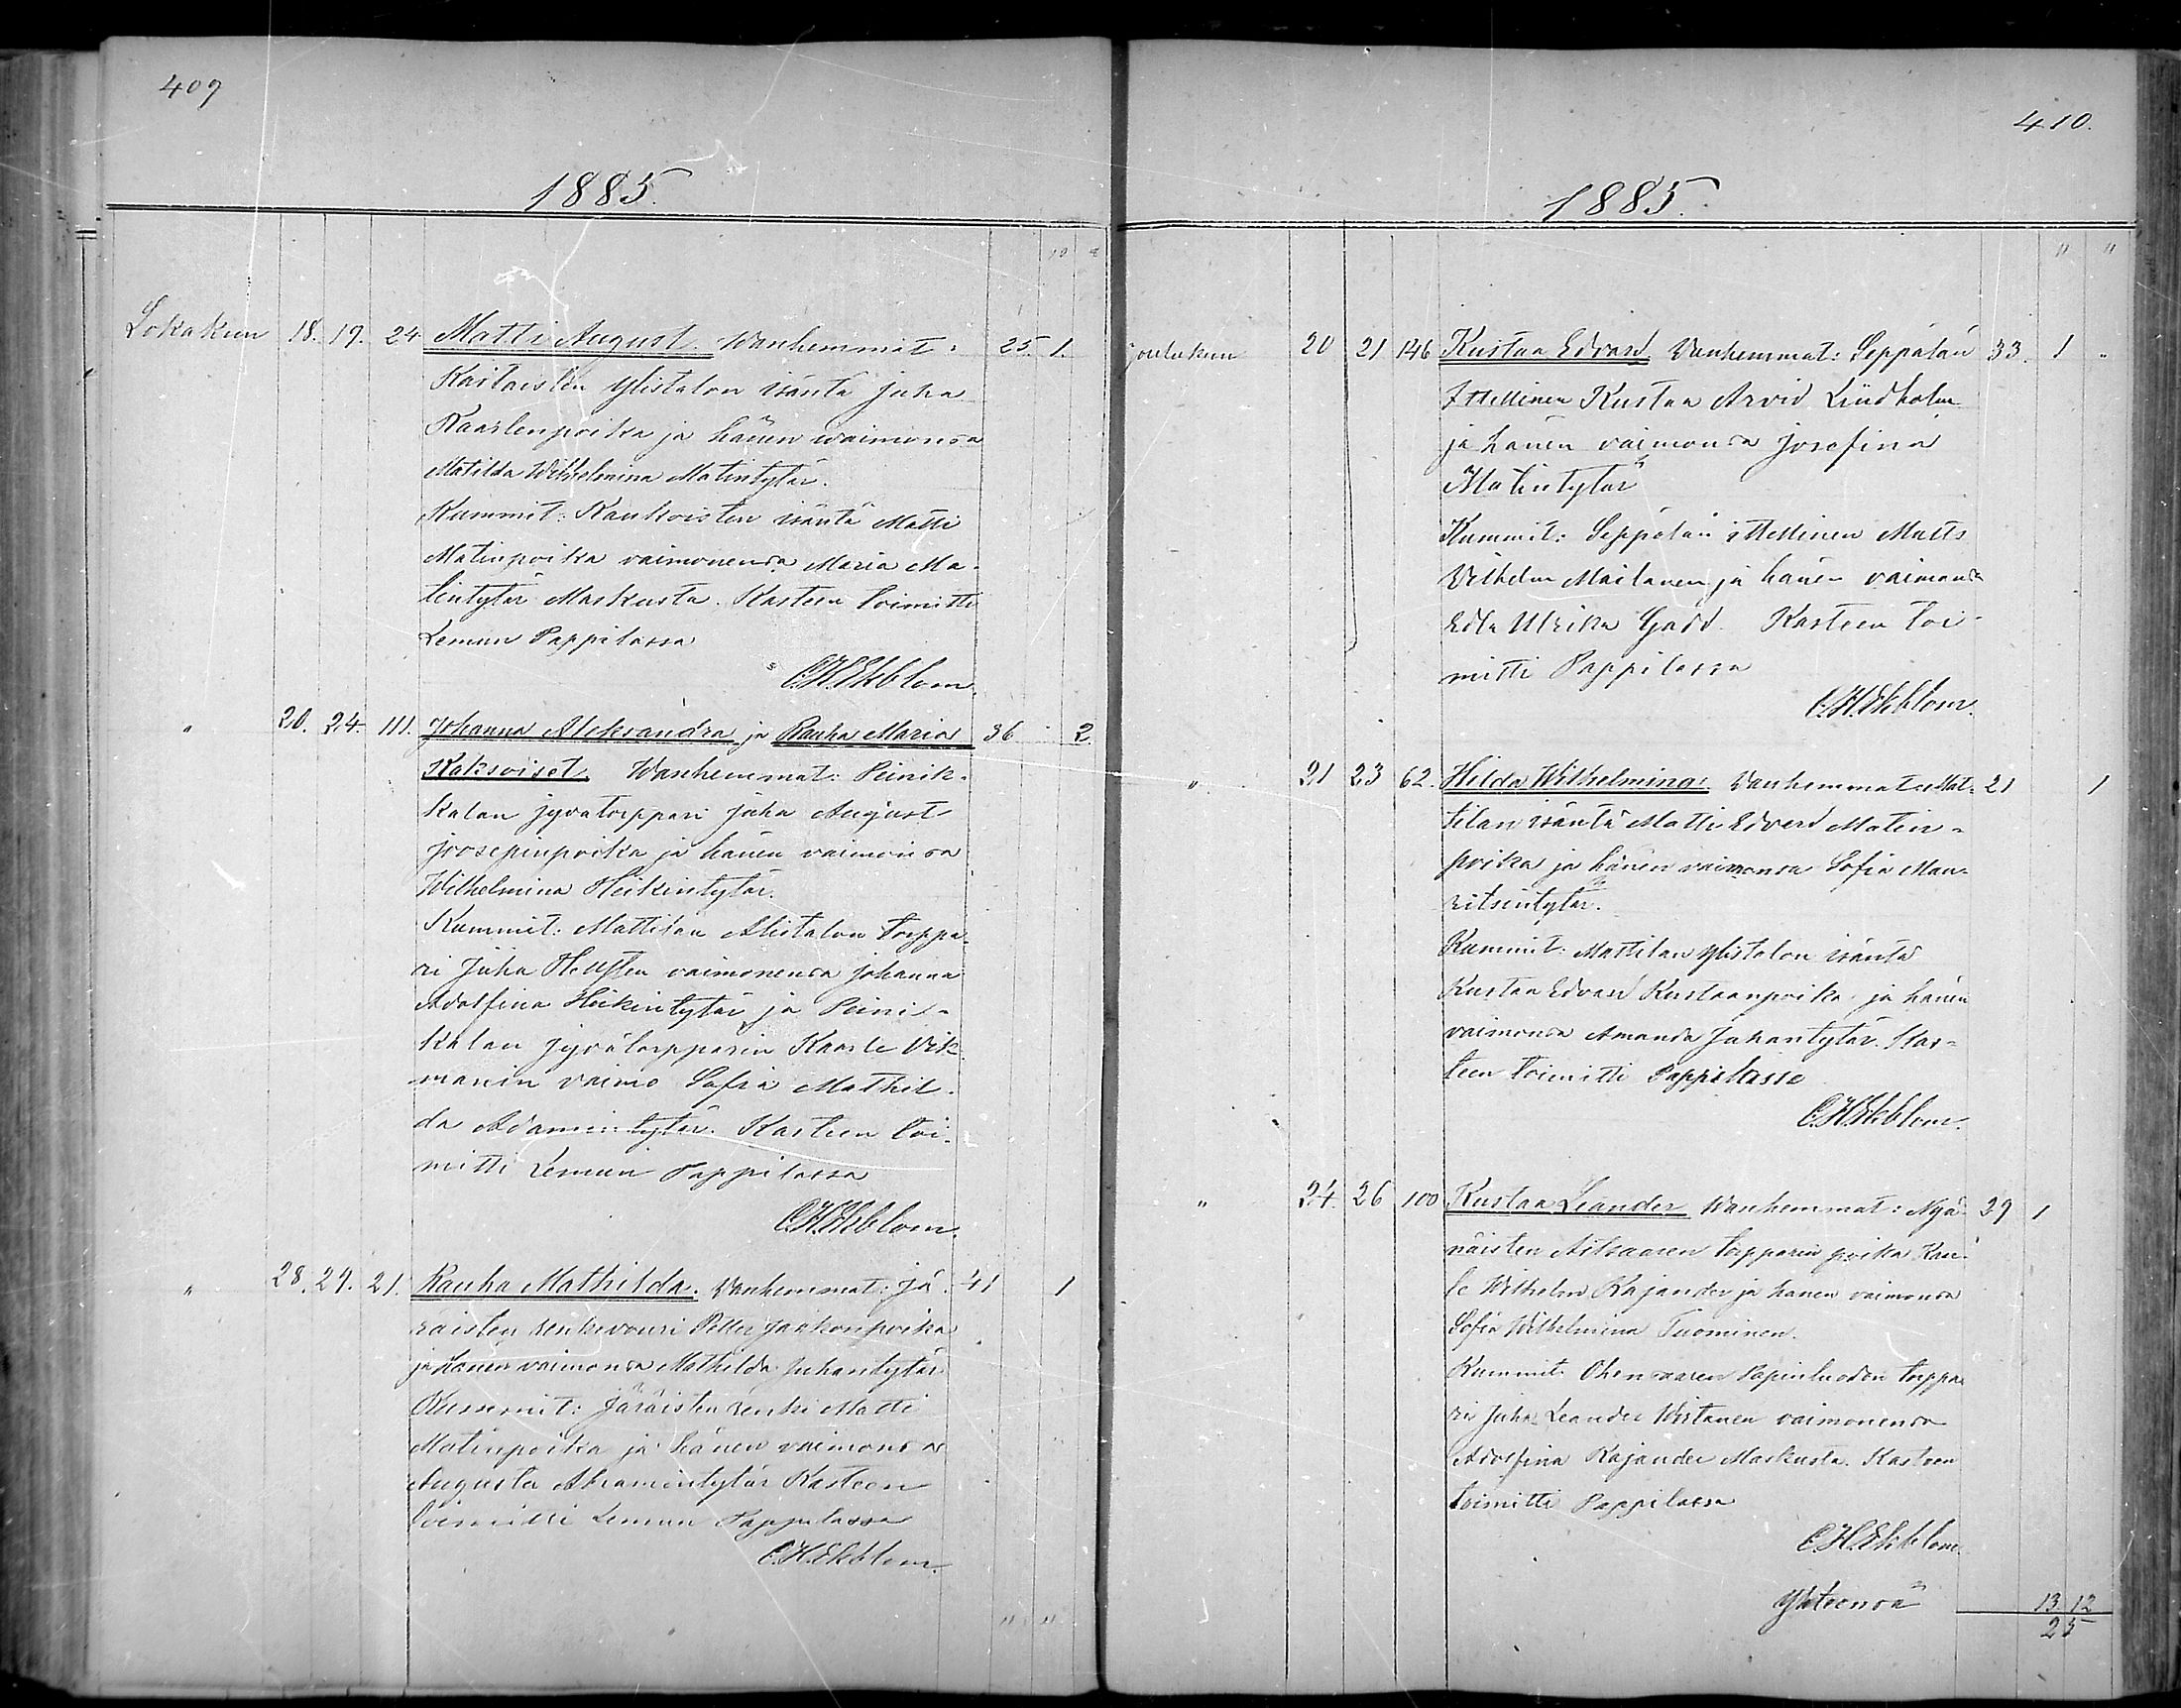 409
1885.
Lokakuu 18. 19. 24 Matti August Wanhemmat: 25. 1.
Kaitaisten Ylistalon isäntä Juha
Kaarlenpoika ja hänen waimonsa
Matilda Wilhelmina Matintytär.
Kummit: Kankoisten isäntä Matti
Matinpoika vaimonensa Maria Ma-
tintytär Maskusta. Kasteen toimitti
Lemun Pappilassa
C.H.Ekblom.
" 20. 24. 111. Johanna Aleksandra ja Rauha Maria 36 2.
Kaksoiset. Wanhemmat: Peinik-
kalan jyvätorppari Juha August
Joosepinpoika ja hänen vaimonsa
Wilhelmina Heikintytär.
Kummit: Mattilan Alistalon torppa-
ri Juha Hellsten vaimonensa Johanna
Adolfina Heikintytär ja Peini-
kalan jyvätorpparin Kaarle Vik-
manin vaimo Sofia Mathil-
da Adamintytär. Kasteen toi-
mitti Lemun Pappilassa
C.H.Ekblom.
" 28. 29. 21. Rauha Mathilda. Vanhemmat: Jä- 41 1
räisten renkivouri Petter Jaakonpoika
ja hänen vaimonsa Mathilda Juhantytär
Kummit: Järäisten renki Matti
Matinpoika ja hänen vaimonsa
Augusta Abramintytär Kasteen
toimitti Lemun Pappilassa
C.H.Ekblom.
" "
410.
1885.
" "
joulukuu 20 21 146 Kustaa Edvard Vanhemmat: Seppälän 33. 1 "
Ittellinen Kustaa Arvid Lindholm
ja hänen vaimonsa Josefina
Matintytär
Kummit: Seppälän ittellinen Matts
Vilhelm Mailanen ja hänen vaimonsa
Edla Ulrika Gadd. Kasteen toi-
mitti Pappilassa
C.H.Ekblom.
" 21 23 62. Hilda Wilhelmina: Vanhemmat: Mat- 21 1
tilan isäntä Matti Edvard Matin-
poika ja hänen vaimonsa Sofia Mau-
ritsintytär.
Kummit: Mattilan Ylistalon isäntä
Kustaa Edvard Kustaanpoika ja hänen
vaimonsa Amanda Juhantytär. Kas-
teen toimitti Pappilassa
C.H.Ekblom.
" 24. 26 100 Kustaa Leander Wanhemmat: Nyä- 29 1
näisten Aitsaaren torpparin poika Kaar-
le Wilhelm Kajander ja hänen vaimonsa
Sofia Wilhelmina Tuominen.
Kummit: Ohensaaren Papinluodon torppa-
ri Juha Leander Virtanen vaimonensa
Adolfina Kajander Maskusta. Kasteen
toimitti Pappilassa
C.H.Ekblom.
Yhteensä 13 12
25